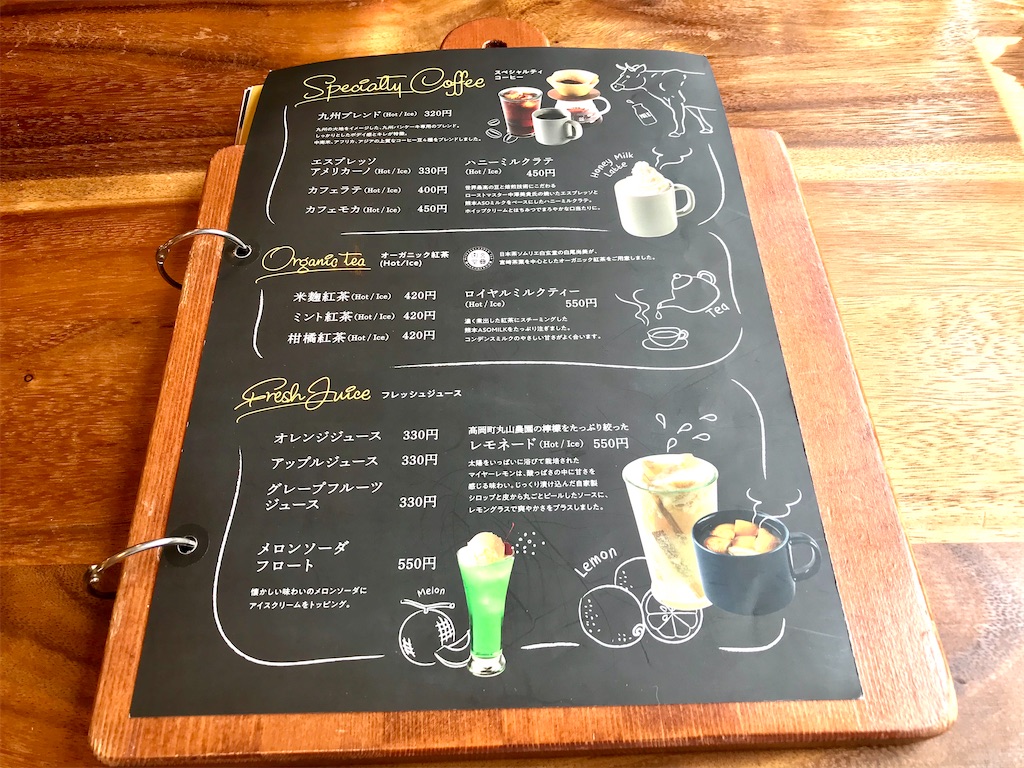 Specialty Coffee
スペシャルティ
コーヒー
九州ブレンド(Hot / Ice) 320円
九州の大地をイメージした、九州パンケーキ専用のブレンド。
しっかりとしたボディ感とキレが特徴。
中南米、アフリカ、アジアの上質なコーヒー豆4種をブレンドしました。
エスプレッソ
アメリカーノ(Hot / Ice) 330円
カフェラテ(Hot / Ice) 400円
カフェモカ(Hot / Ice) 450円
ハニーミルクラテ
(Hot / Ice) 450円
世界最高の豆と焙煎技術にこだわる
ローストマスター中澤美貴氏の焼いたエスプレッソと
熊本ASOミルクをベースにしたハニーミルクラテ。
ホイップクリームとはちみつでまろやかな口当たりに。
Honey Milk
Latte
Organic tea
オーガニック紅茶
(Hot/Ice)
日本茶ソムリエ白玄堂の白尾尚美が、
宮崎茶葉を中心としたオーガニック紅茶をご用意しました。
米麹紅茶(Hot / Ice) 420円
ミント紅茶(Hot / Ice) 420円
柑橘紅茶(Hot / Ice) 420円
ロイヤルミルクティー
(Hot / Ice) 550円
濃く煮出した紅茶にスチーミングした
熊本ASOMILKをたっぷり注ぎました。
コンデンスミルクのやさしい甘さがよく合います。
Tea
Fresh Juice フレッシュジュース
オレンジジュース 330円
アップルジュース 330円
グレープフルーツ
ジュース 330円
メロンソーダ
フロート 550円
懐かしい味わいのメロンソーダに
アイスクリームをトッピング。
Melon
高岡町丸山農園の檸檬をたっぷり絞った
レモネード(Hot / Ice) 550円
太陽をいっぱいに浴びて栽培された
マイヤーレモンは、酸っぱさの中に甘さを
感じる味わい。じっくり漬け込んだ自家製
シロップと皮から丸ごとピールしたソースに、
レモングラスで爽やかさをプラスしました。
Lemon